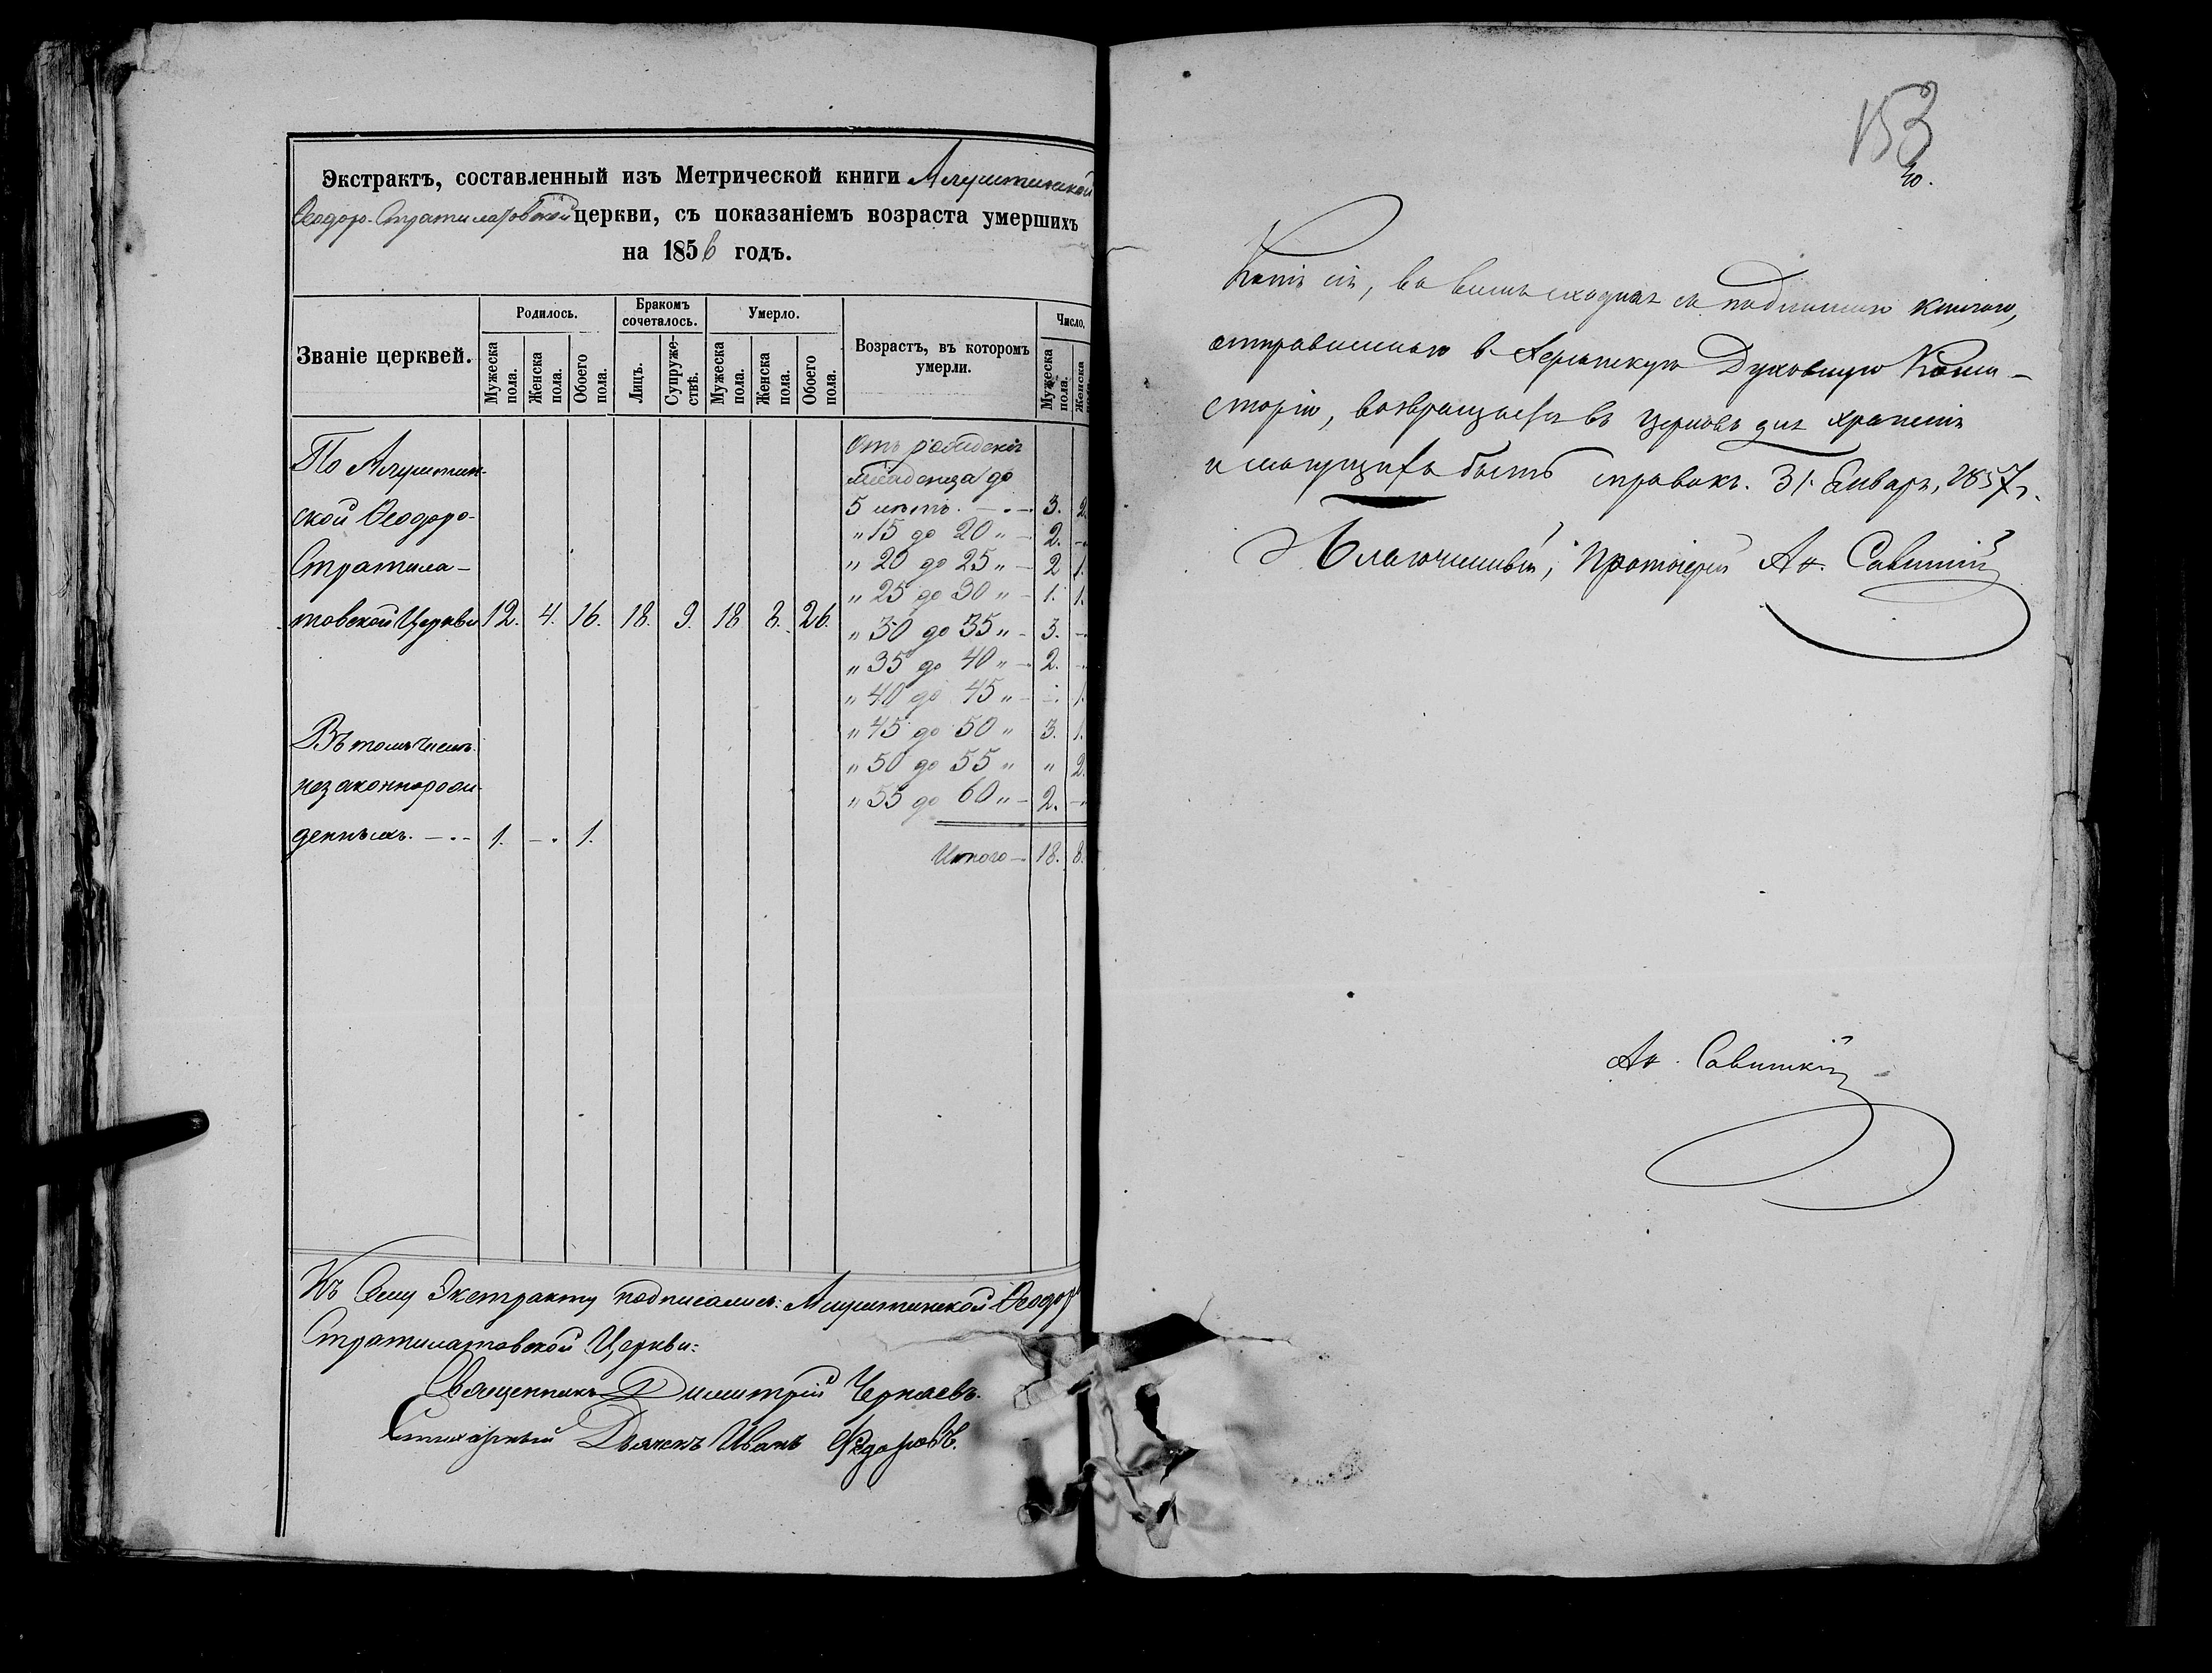 Экстрактъ, составленный изъ Метрической книги Алуштинской
Ѳеодоро-Стратилатовской церкви, съ показаніемъ возраста умершихъ
на 1856 годъ.
Званіе церквей. Родилось. Бракомъ сочеталось. Умерло. Возрастъ, въ которомъ умерли. Число.
Мужеска пола. Женска пола. Обоего пола. Лицъ. Супружествъ. Мужеска пола. Женска пола. Обоего пола. Мужеска пола. Женска
Отъ рожденія
По Алуштин- младенца до
ской Ѳеодоро- 5 лѣтъ. 3. 2.
"15 до 20 " - 2. -
Стратила- " 20 до 25 " - 2 1.
" 25 до 30 " - 1. 1.
товской Церкви 12. 4. 16. 18. 9. 18 8. 26. " 30 до 35 " - 3. -
" 35 до 40 " - 2. -
" 40 до 45 " - - 1.
Въ томъ числѣ " 45 до 50 " 3. 1.
" 50 до 55 " " 2.
незаконнорож- " 55 до 60 " - 2. -
денныхъ. - . - 1. - . 1.
Итого - 18. 8.
Къ Сему Экстракту подписались: Алуштинской Ѳеодоро
Стратилатовской Церкви:
Священникъ Димитрій Чернаевъ.
Стихарный Дьячекъ Иванъ Ѳедоровъ.
153
Копія сія, во всемъ сходная съ подлинною книгою,
отправленною в Херсонскую Духовную Конси-
сторію, возвращается въ церковь для храненія
и могущихъ быть справокъ. 31. Января, 1857 г.
Благочинный, Протоіерей Ак. Савитскій
Ак. Савитскій